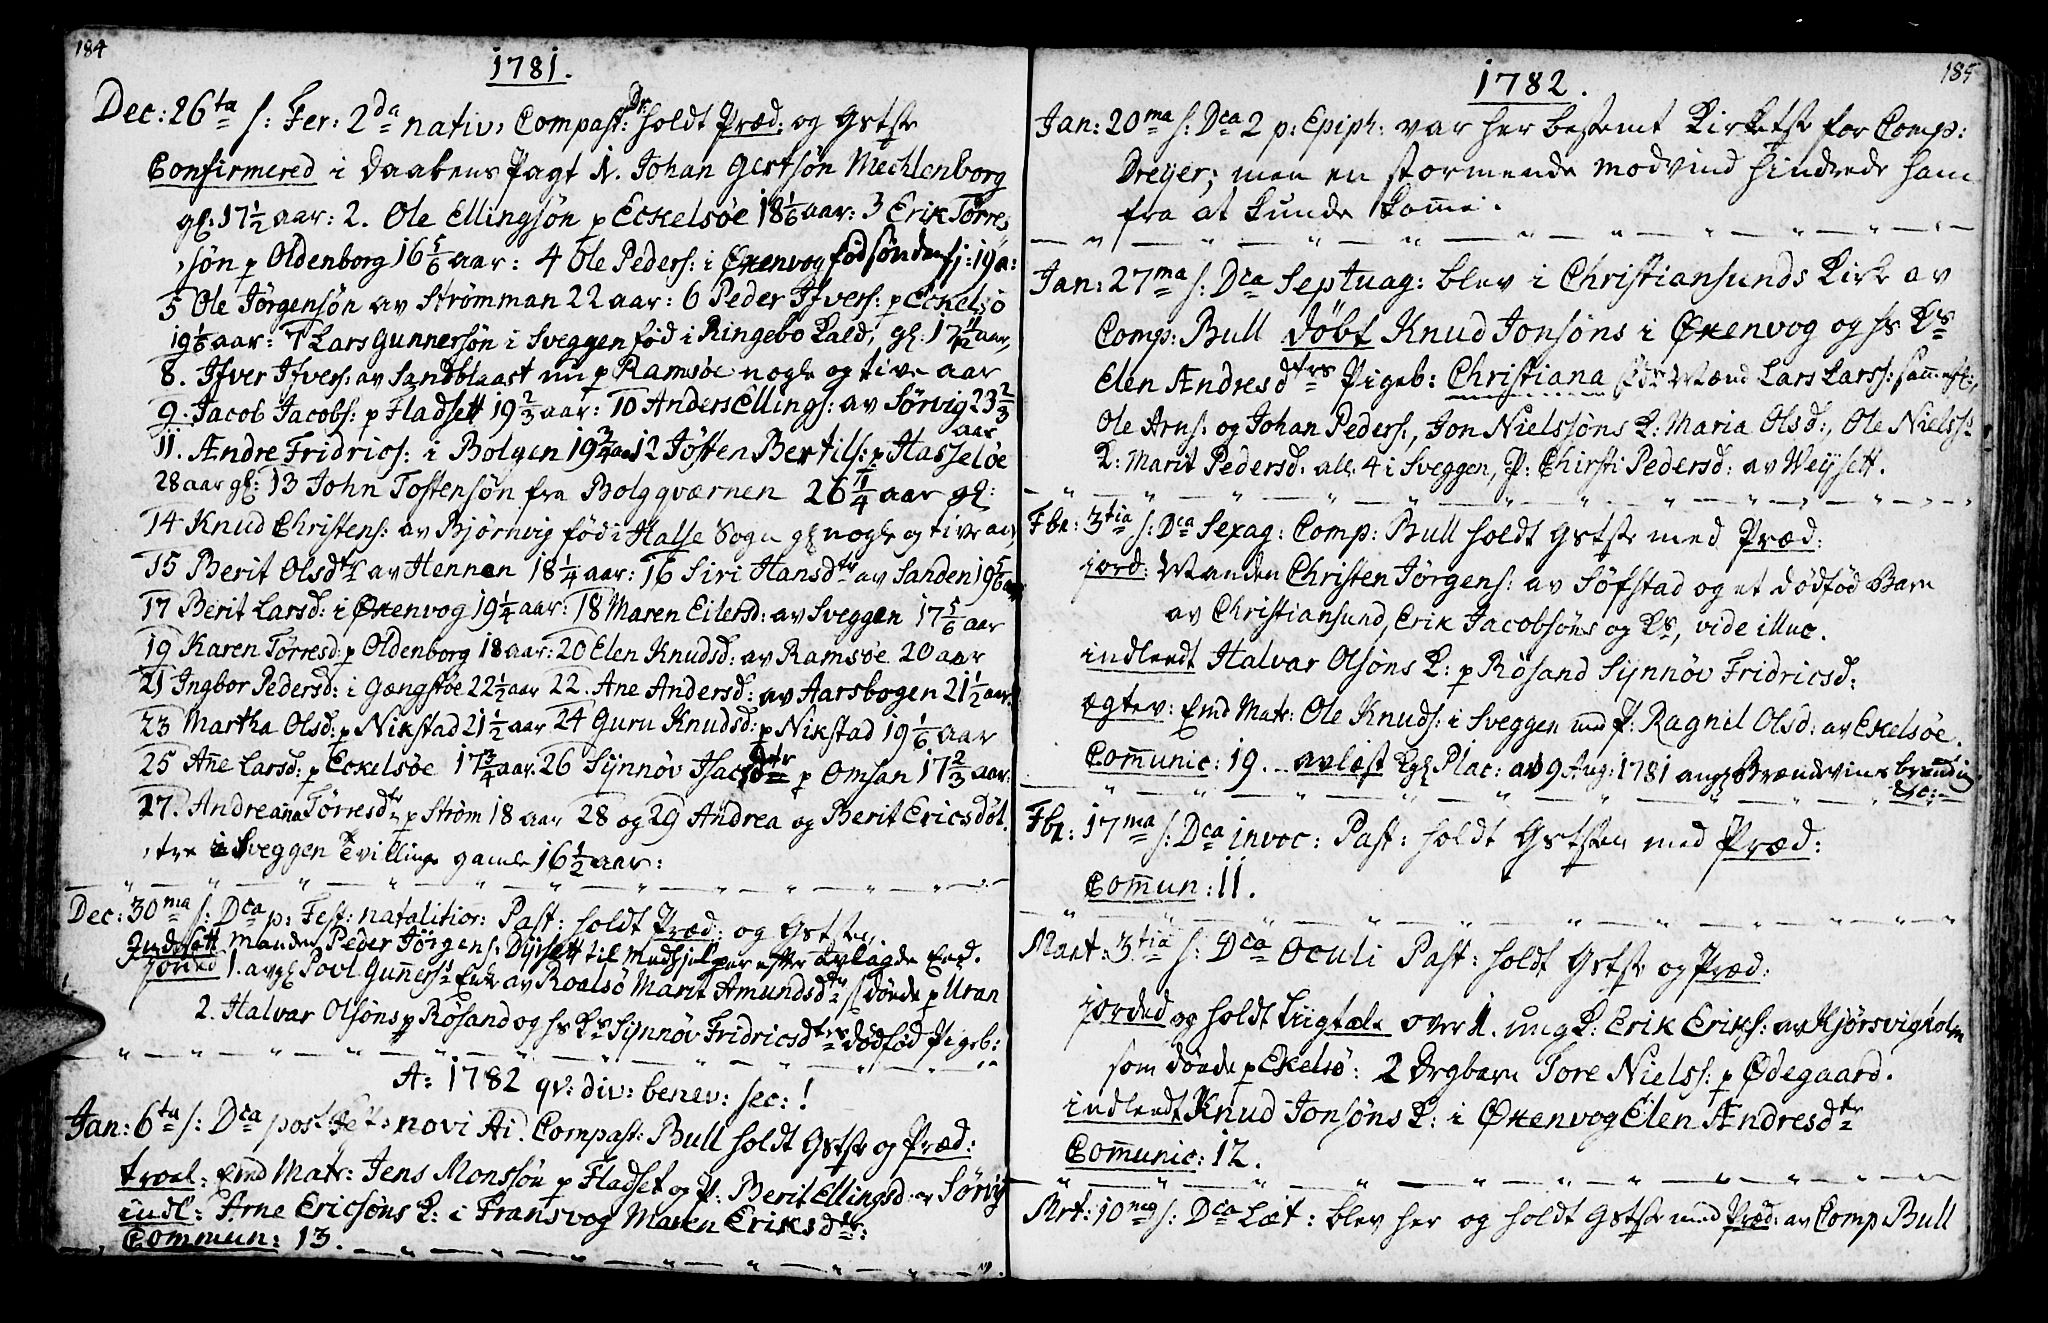 184
1781.
Dec: 26ta s: Fer: 2da nativ: Compast: Dr: holdt Præd: og Gstste
Confirmered i Daabens Pagt 1. Johan Gertsøn Mechlenborg
gl: 17½ aar: 2. Ole Ellingsøn p Eckelsøe 18 1/6 aar: 3 Erik Torres
søn p Oldenborg 16 5/6 aar: 4 Ole Peders: i Øxenvog fød sønden fj: 19 a:
5 Ole Jörgensön av Strømman 22 aar: 6 Peder Ifvers: p Eckelsö
19 1/6 aar: 7 Lars Gunnersön i Sveggen fød i Ringebo Kald, gl: 17½ aar,
8. Ifver Ifvers: av Sandblaast nu p Ramsöe nogle og tive aar
9. Jacob Jacobs: p Fladsett 19 2/3 aar: 10 Anders Ellings: av Sörvig 23 2/3
aar
11. Ændre Fridrics: i Bolgen 19 3/4 aar 12 Jösten Bertils: p Hasselöe
28 aar gl: 13 John Tostensön fra Bolgqværnen 26 1/4 aar gl:
14 Knud Christens: av Bjørnvig fød i Halse Sogn gl nogle og tive aar
15 Berit Olsdtr av Hennen 18 1/4 aar: 16 Siri Hansdtr av Sanden 19 5/6 aar
17 Berit Larsd: i Øxenvog 19 1/4 aar: 18 Maren Eilersd: av Sveggen 17 5/6 aar
19 Karen Torresd: p Oldenborg 18 aar: 20 Elen Knudsd: av Ramsöe 20 aar
21 Ingbor Pedersd: i Gængstöe 22½ aar 22. Ane Andersd: av Aarsbogen 21½ aar.
23 Martha Olsd: p Nikstad 21½ aar 24 Guru Knudsd: p Nikstad 19 1/6 aar
25 Añe Larsd: p Eckelsöe 17 3/4 aar. 26 Synnöv Isacsdtr p Omsan 17 2/3 aar:
27. Andreana Torresdtr p Ström 18 aar 28 og 29 Andrea og Berit Ericsdöt
tre i Sveggen Tvillinge gamle 16½ aar:
Dec: 30ma s: Dca p: Fest: natalitior: Past: holdt Præd: og Gstste,
Indsatt Manden Peder Jörgens: Dyrsett til Medhjelper efter avlagde Eed.
jorded 1. avgl Povl Guñers: Enke av Roalsö Marit Amundsdtr döde p Uran
2. Halvar Olsöns p Rösand og hs Ks Synnöv Fridricsdtrs dödfød Pigeb:
A: 1782 qv: div: benev: sec: !
Jan: 6ta s: Dca post Fest: novi Ai. Compast: Bull holdt Gstste og Præd:
trol: Emd Matr: Jens Monssön p Fladset og P: Berit Ellingsd: av Sørvig
indl: Arne Ericsöns K: i Fransvog Maren Eriksdtr:
Commun: 13.
185
1782.
Jan: 20ma s: Dca 2 p: Epiph: var her bestemt Kirketste for Comp:
Dreyer; men en stormende modvind hindrede ham
fra at kunde kome.
Jan: 27ma s: Dca Septuag: blev i Christiansunds Kirke av
Comp: Bull döbt Knud Jonsöns i Øxenvog og hs Ks
Elen Ændresdtrs Pigeb: Christiana Fdr Mænd Lars Larss: samest:,
Ole Arns: og Johan Peders:, Jon Nielssöns K: Maria Olsd:, Ole Nielss:
K: Marit Pedersd: alle 4 i Sveggen, P: Chirsti Pedersd: av Weysett.
Fbr: 3tia s: Dca Sexag: Comp: Bull holdt Gstste med Præd:
jord: Manden Christen Jörgens: av Söfstad og et dödfød Barn
av Christiansund, Erik Jacobsöns og Ks, vide illuc.
indleedt Halvar Olsöns K: p Rösand Synnöv Fridricsd:
ægtev: Emd Matr: Ole Knuds: i Sveggen med P: Ragnil Olsd: av Ekelsöe.
Comunic: 19. avlæst Kgl Plac: av 9 Aug: 1781 angl Brændeviins brænding
etc:
Fbr: 17ma s: Dca invoc: Past: holdt Gststen med Præd:
Comun: 11.
Mart: 3tia s: Dca Oculi Past: holdt Gstste og Præd:
jorded og holdt Liigtale over 1. ung K: Erik Eriks: av Kjörsvigholm
som döde p Ekelsö: 2 Drgbarn Tore Nielss: p Ødegaard.
indleedt Knud Jonsöns K: i Øxenvog Elen Ændresdtr
Comunic: 12.
Mrt: 10ma s: Dca Læt: blev her og holdt Gstste med Præd: av Comp Bull